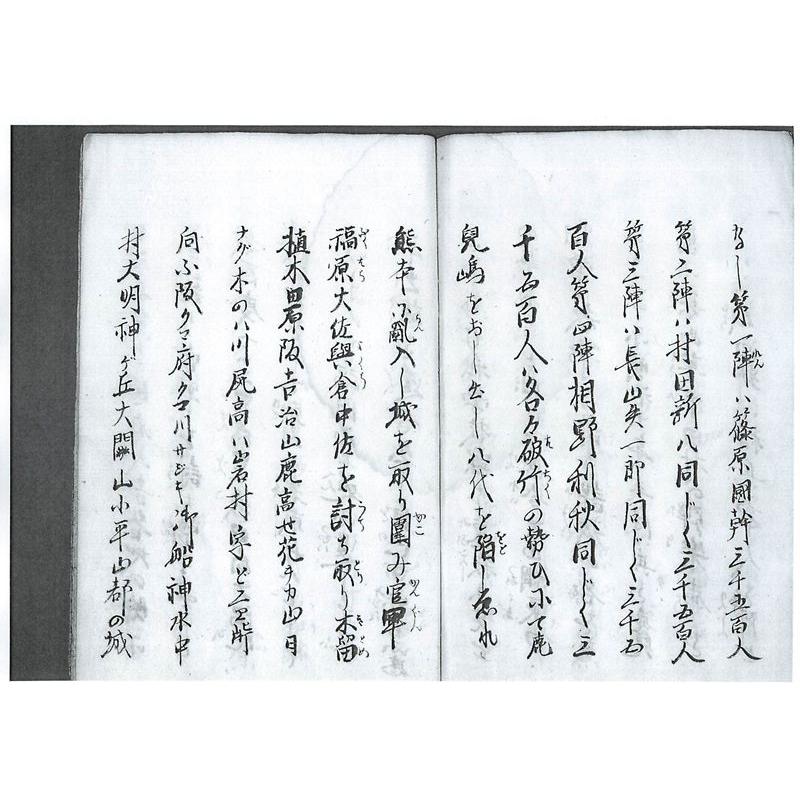 なし第一陣ハ篠原國幹三千五百人
第二陣ハ村田新八同じく三千五百人
第三陣ハ長山矢一郎同じく三千五
百人第四陣相野利秋同じく三
千五百人ハ各々破竹の勢ひにて鹿
兒嶋をおし出し八代を陥しゐれ
熊本に亂入し城を取り圍み官軍
福原大佐與倉中佐を討ち取り木留
植木田原阪吉治山鹿高せ花チカ山日
ナグ木のハ川尻高ハ岩村字と三
向ふ阪クマ府クマ川 御船神水中
村大明神ヶ丘大闢山小平山都の城